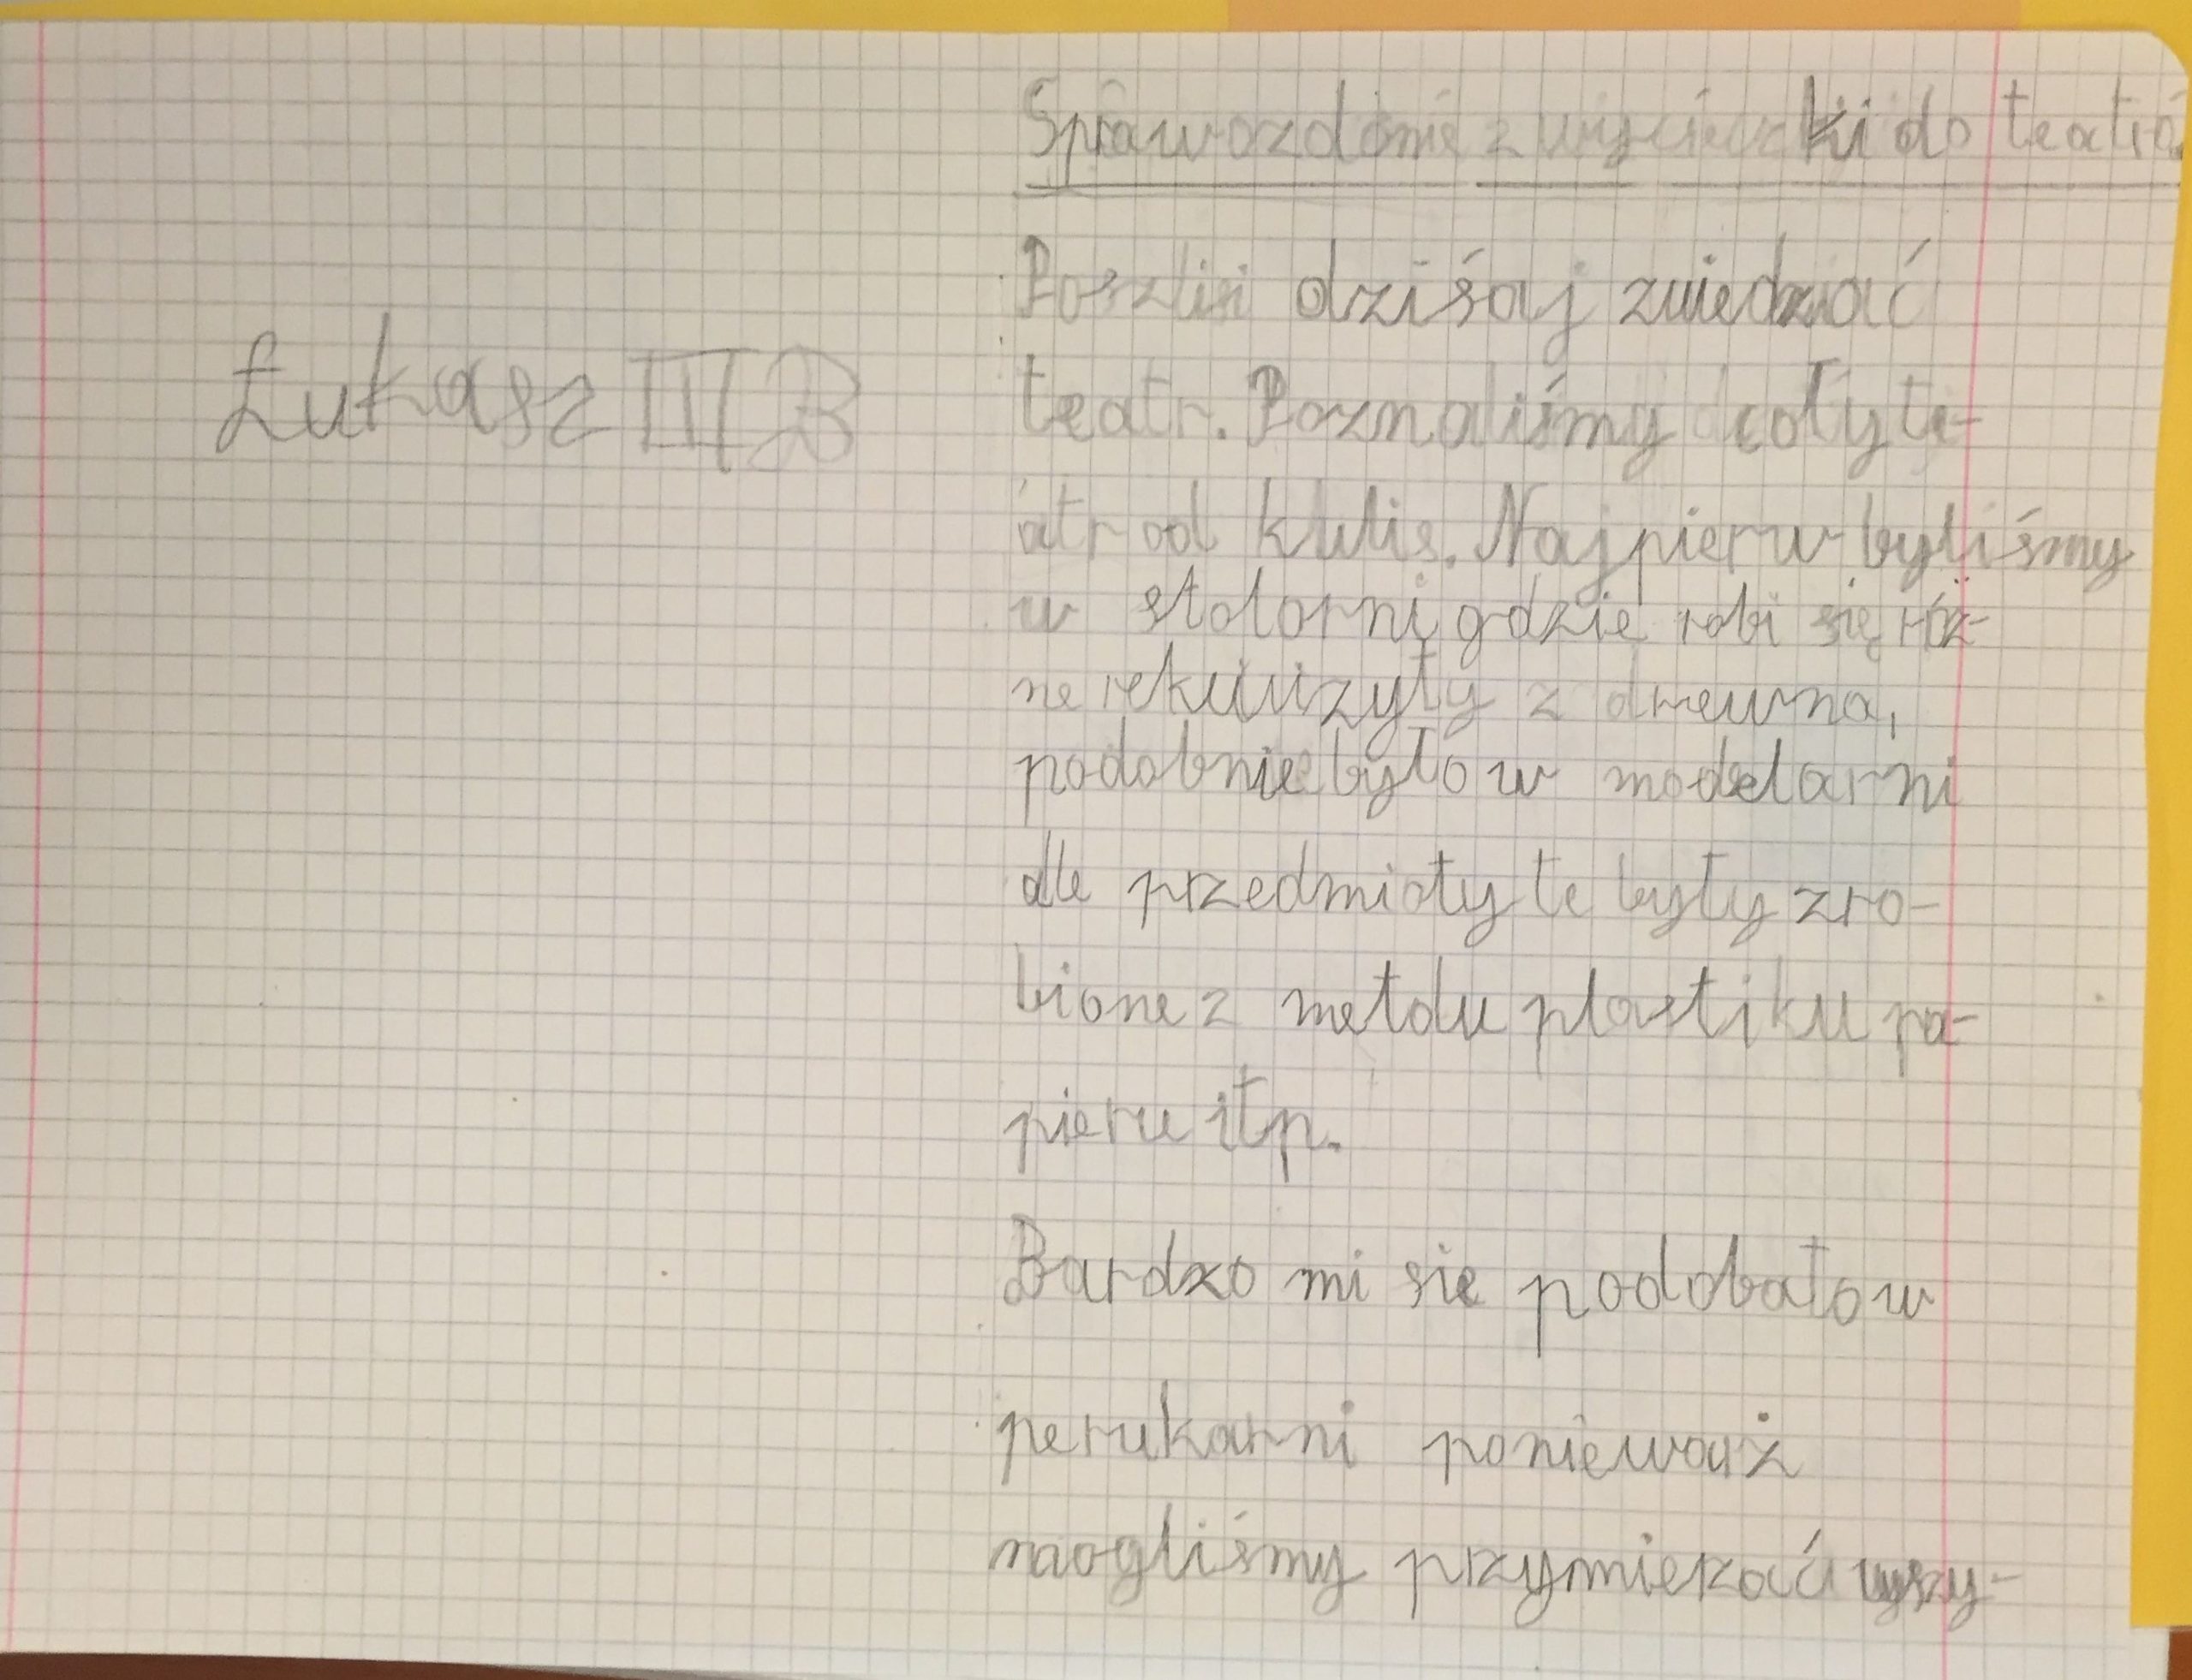 Sprawozdanie z wycieczki do teatru
Poszliśi dziśaj zwiedzać
Łukasz III B
teatr. Poznaliśmy cały te-
atr od kulis. Najpierw byliśmy
w stolarni gdzie robi się róż-
ne rekwizyty z drewna,
podobnie było w modelarni
ale przedmioty te były zro-
bione z metalu plastiku pa-
pieru itp.
Bardzo mi się podobało w
perukarni ponieważ
mogliśmy przymierzać